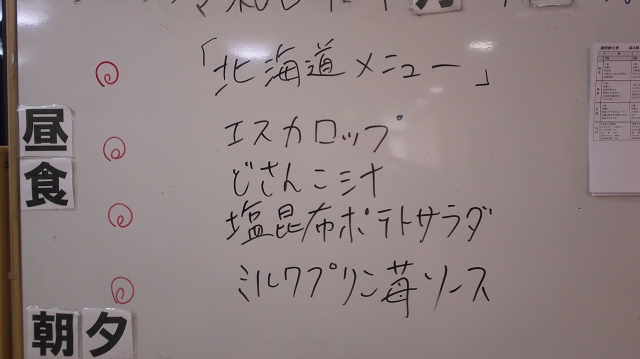 「北海道メニュー」
エスカロップ
どさんこ汁
塩昆布ポテトサラダ
ミルクプリン苺ソース
昼
食
朝夕